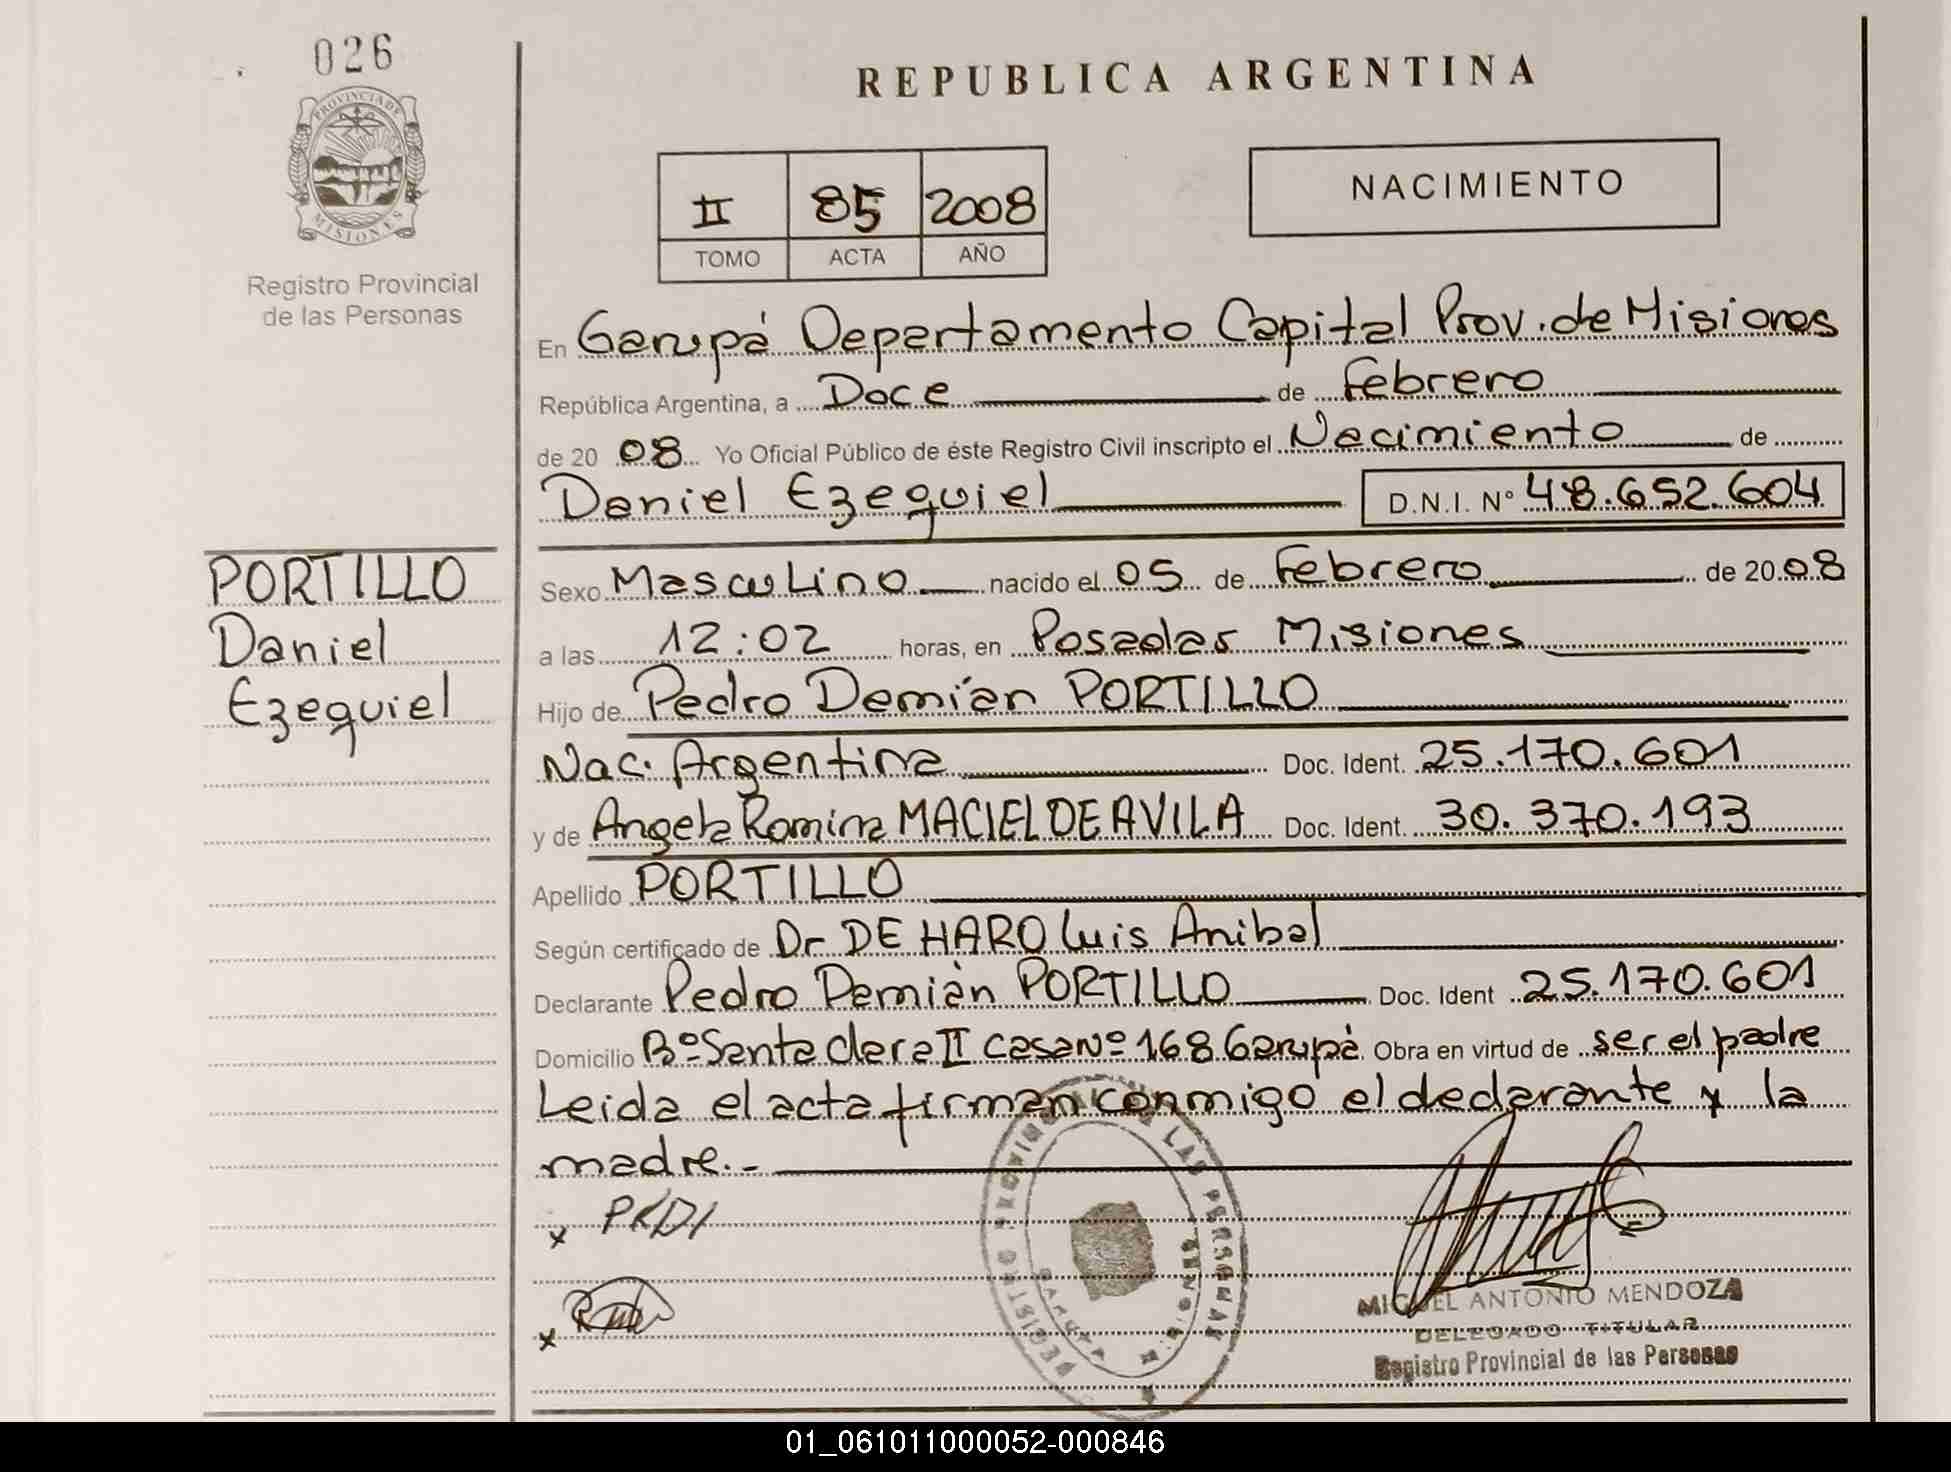 026
PROVINCIA DE
MISIONES
Registro Provincial
de las Personas
REPUBLICA ARGENTINA
II 85 2008
TOMO ACTA AÑO
NACIMIENTO
En Garupá Departamento Capital Prov. de Misiones
República Argentina, a Doce de Febrero
de 20 08 Yo Oficial Público de éste Registro Civil inscripto el Nacimiento de
Daniel Ezequiel D.N.I. Nº 48.652.604
PORTILLO
Daniel
Ezequiel
Sexo Masculino nacido el 05 de Febrero de 20 08
a las 12:02 horas, en Posadas Misiones
Hijo de Pedro Demián PORTILLO
Nac. Argentina Doc. Ident. 25.170.601
y de Angela Romina MACIEL DE AVILA Doc. Ident. 30.370.193
Apellido PORTILLO
Según certificado de Dr DE HARO Luis Anibal
Declarante Pedro Demián PORTILLO Doc. Ident 25.170.601
Domicilio Bº Santa Clara II Casa Nº 168 Garupá Obra en virtud de ser el padre
Leida el acta firman conmigo el declarante y la
madre.-
x
x
REGISTRO PROVINCIAL DE LAS PERSONAS
GARUPA
MISIONES
MIGUEL ANTONIO MENDOZA
DELEGADO TITULAR
Registro Provincial de las Personas
01_061011000052-000846